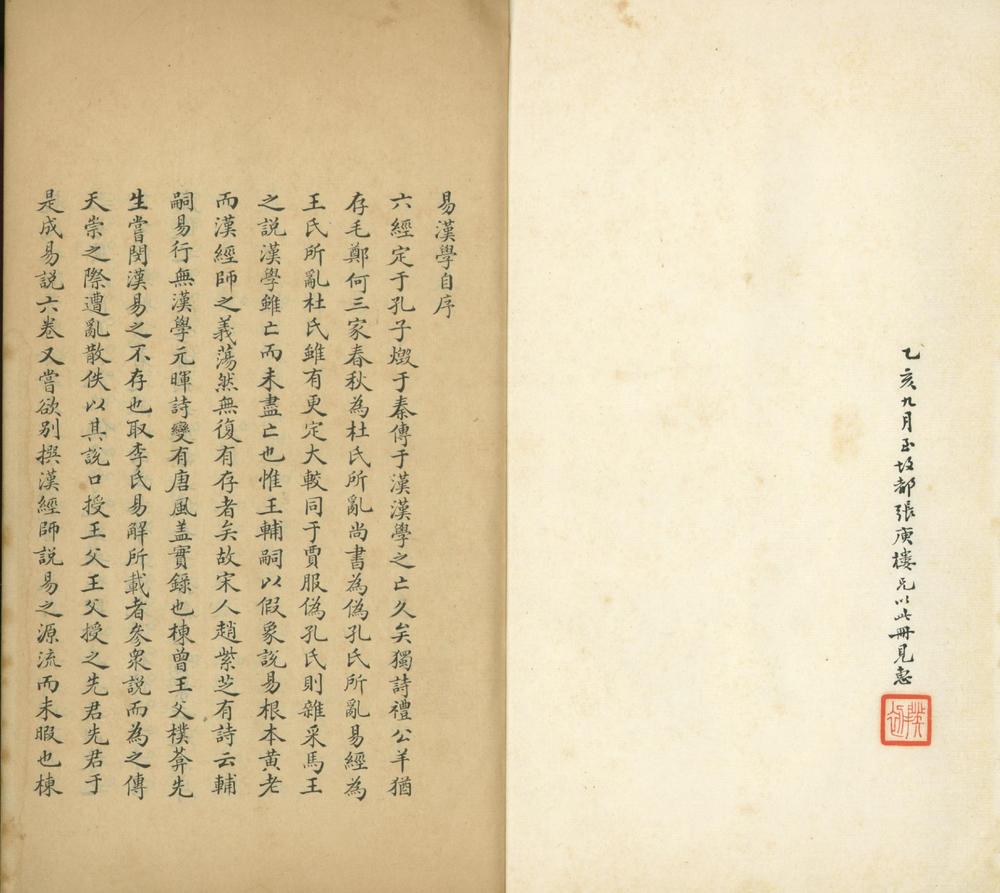 乙亥九月過故都張庚樓兄以此冊見惠
易漢學自序
六經定于孔子燬于秦傳于漢漢學之亡久矣獨詩禮公羊猶
存毛鄭何三家春秋為杜氏所亂尚書為偽孔氏所亂易經為
王氏所亂杜氏雖有更定大較同于賈服偽孔氏則雜采馬王
之說漢學雖亡而未盡亡也惟王輔嗣以假象說易根本黃老
而漢經師之義蕩然無復有存者矣故宋人趙紫芝有詩云輔
嗣易行無漢學元暉詩變有唐風盖實錄也棟曾王父樸菴先
生嘗閔漢易之不存也取李氏易解所載者參衆說而為之傳
天崇之際遭亂散佚以其說口授王父王父授之先君先君于
是成易說六卷又嘗欲別撰漢經師說易之源流而未暇也棟